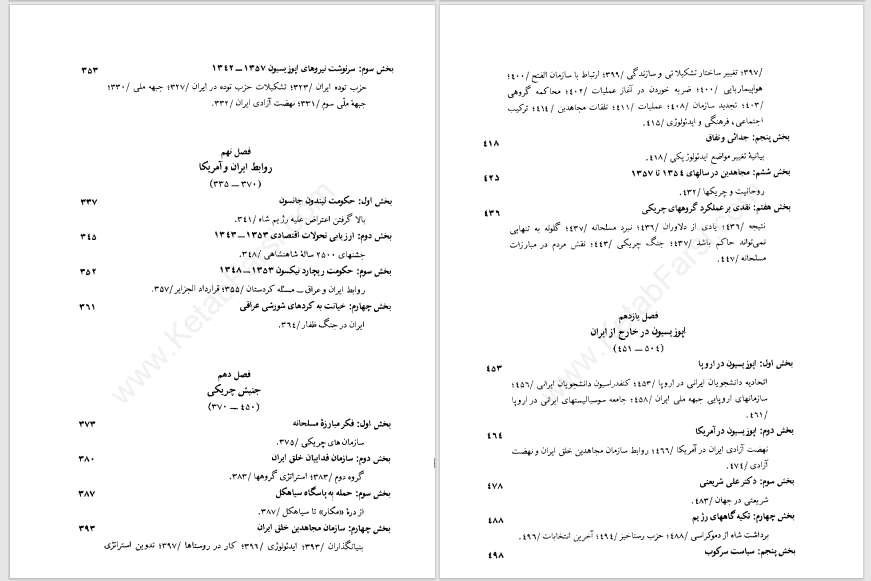 بخش سوم: سرنوشت نیروهای اپوزیسیون ۱۳۵۷ ــ ۱۳۴۲ ۳۵۳
حزب توده ایران /۳۲۳؛ تشکیلات حزب توده در ایران /۳۲۷؛ جبهه ملی /۳۳۰؛
جبههٔ ملّی سوم /۳۳۱؛ نهضت آزادی ایران /۳۳۲.
فصل نهم
روابط ایران و آمریکا
(۳۷۰ ــ ۳۳۵)
بخش اول: حکومت لیندون جانسون ۳۳۷
بالا گرفتن اعتراض علیه رژیم شاه /۳۴۱.
بخش دوم: ارزیابی تحولات اقتصادی ۱۳۵۳ ــ ۱۳۴۳ ۳۴۵
جشنهای ۲۵۰۰ سالهٔ شاهنشاهی /۳۴۸.
بخش سوم: حکومت ریچارد نیکسون ۱۳۵۳ ــ ۱۳۴۸ ۳۵۲
روابط ایران و عراق ــ مسئله کردستان /۳۵۵؛ قرارداد الجزایر /۳۵۷.
بخش چهارم: خیانت به کردهای شورشی عراقی ۳۶۱
ایران در جنگ ظفار /۳۶۴.
فصل دهم
جنبش چریکی
(۴۵۰ ــ ۳۷۰)
بخش اول: فکر مبارزهٔ مسلحانه ۳۷۳
سازمان های چریکی /۳۷۵.
بخش دوم: سازمان فداییان خلق ایران ۳۸۰
گروه دوم /۳۸۳؛ استراتژی گروهها /۳۸۳.
بخش سوم: حمله به پاسگاه سیاهکل ۳۸۷
از درهٔ «مکار» تا سیاهکل /۳۸۷.
بخش چهارم: سازمان مجاهدین خلق ایران ۳۹۳
بنیانگذاران /۳۹۳؛ ایدئولوژی /۳۹۶؛ کار در روستاها /۳۹۷؛ تدوین استراتژی
/۳۹۷؛ تغییر ساختار تشکیلاتی و سازندگی /۳۹۹؛ ارتباط با سازمان الفتح /۴۰۰؛
هواپیماربایی /۴۰۰؛ ضربه خوردن در آغاز عملیات /۴۰۲؛ محاکمه گروهی
/۴۰۳؛ تجدید سازمان /۴۰۸؛ عملیات /۴۱۱؛ تلفات مجاهدین /۴۱۴؛ ترکیب
اجتماعی، فرهنگی و ایدئولوژی /۴۱۵.
بخش پنجم: جدائی و نفاق ۴۱۸
بیانیهٔ تغییر مواضع ایدئولوژیکی /۴۱۸.
بخش ششم: مجاهدین در سالهای ۱۳۵۴ تا ۱۳۵۷ ۴۲۵
روحانیت و چریکها /۴۳۲.
بخش هفتم: نقدی بر عملکرد گروههای چریکی ۴۳۶
نتیجه /۴۳۶؛ یادی از دلاوران /۴۳۶؛ نبرد مسلحانه /۴۳۷؛ گلوله به تنهایی
نمی‌تواند حاکم باشد /۴۳۷؛ جنگ چریکی /۴۴۳؛ نقش مردم در مبارزات
مسلحانه /۴۴۷.
فصل یازدهم
اپوزیسیون در خارج از ایران
(۵۰۴ ــ ۴۵۱)
بخش اول: اپوزیسیون در اروپا ۴۵۳
اتحادیه دانشجویان ایرانی در اروپا /۴۵۳؛ کنفدراسیون دانشجویان ایرانی /۴۵۶؛
سازمانهای اروپایی جبهه ملی ایران /۴۵۸؛ جامعه سوسیالیستهای ایرانی در اروپا
/۴۶۱.
بخش دوم: اپوزیسیون در آمریکا ۴۶۴
نهضت آزادی ایران در آمریکا /۴۶۶؛ روابط سازمان مجاهدین خلق ایران و نهضت
آزادی /۴۷۴.
بخش سوم: دکتر علی شریعتی ۴۷۸
شریعتی در جهان /۴۸۳.
بخش چهارم: تکیه گاههای رژیم ۴۸۸
برداشت شاه از دموکراسی /۴۸۸؛ حزب رستاخیز /۴۹۴؛ آخرین انتخابات /۴۹۶.
بخش پنجم: سیاست سرکوب ۴۹۸
www.KetabFarsi.com
www.KetabFarsi.com